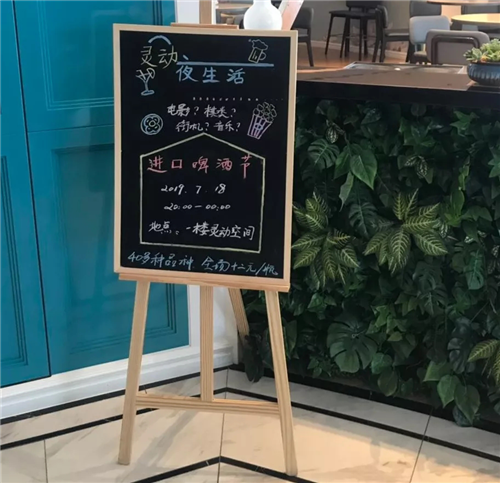 灵动、夜生活
电影？棋类？
街机？音乐？
进口啤酒节
2019.7.18
20:00—00:00
地点：一楼灵动空间
40多种品种 全场十二元/瓶